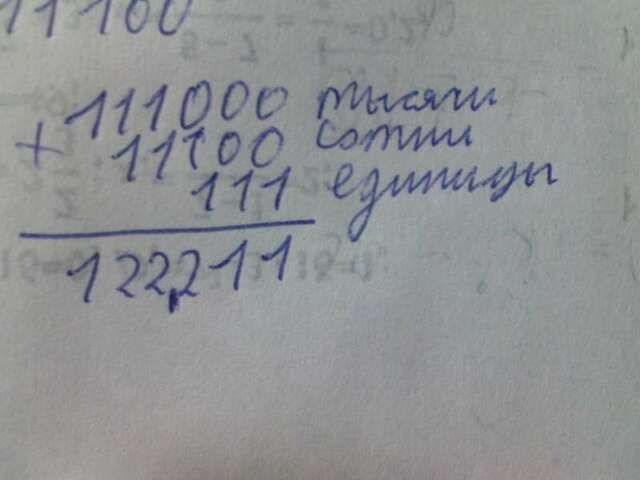 11100
111000 тысячи
+ 11100 сотни
111 единицы
122,211